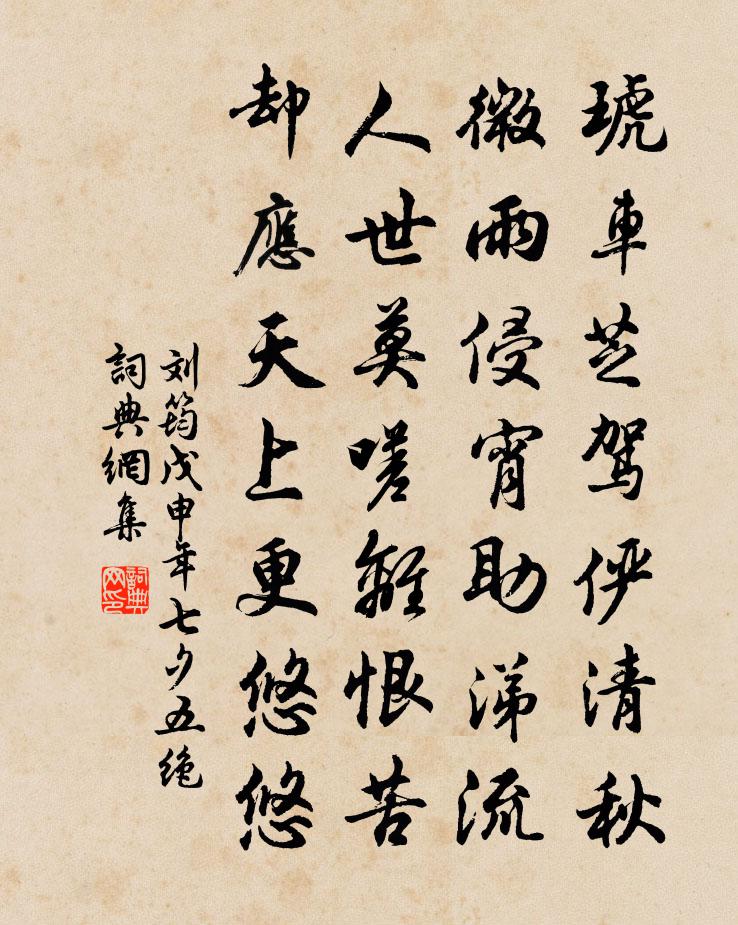 琥車芝駕儼清秋
微雨侵宵助涕流
人世莫嗟離恨苦
却應天上更悠悠
刘筠戊申年七夕五绝
詞典網集
詞典网印